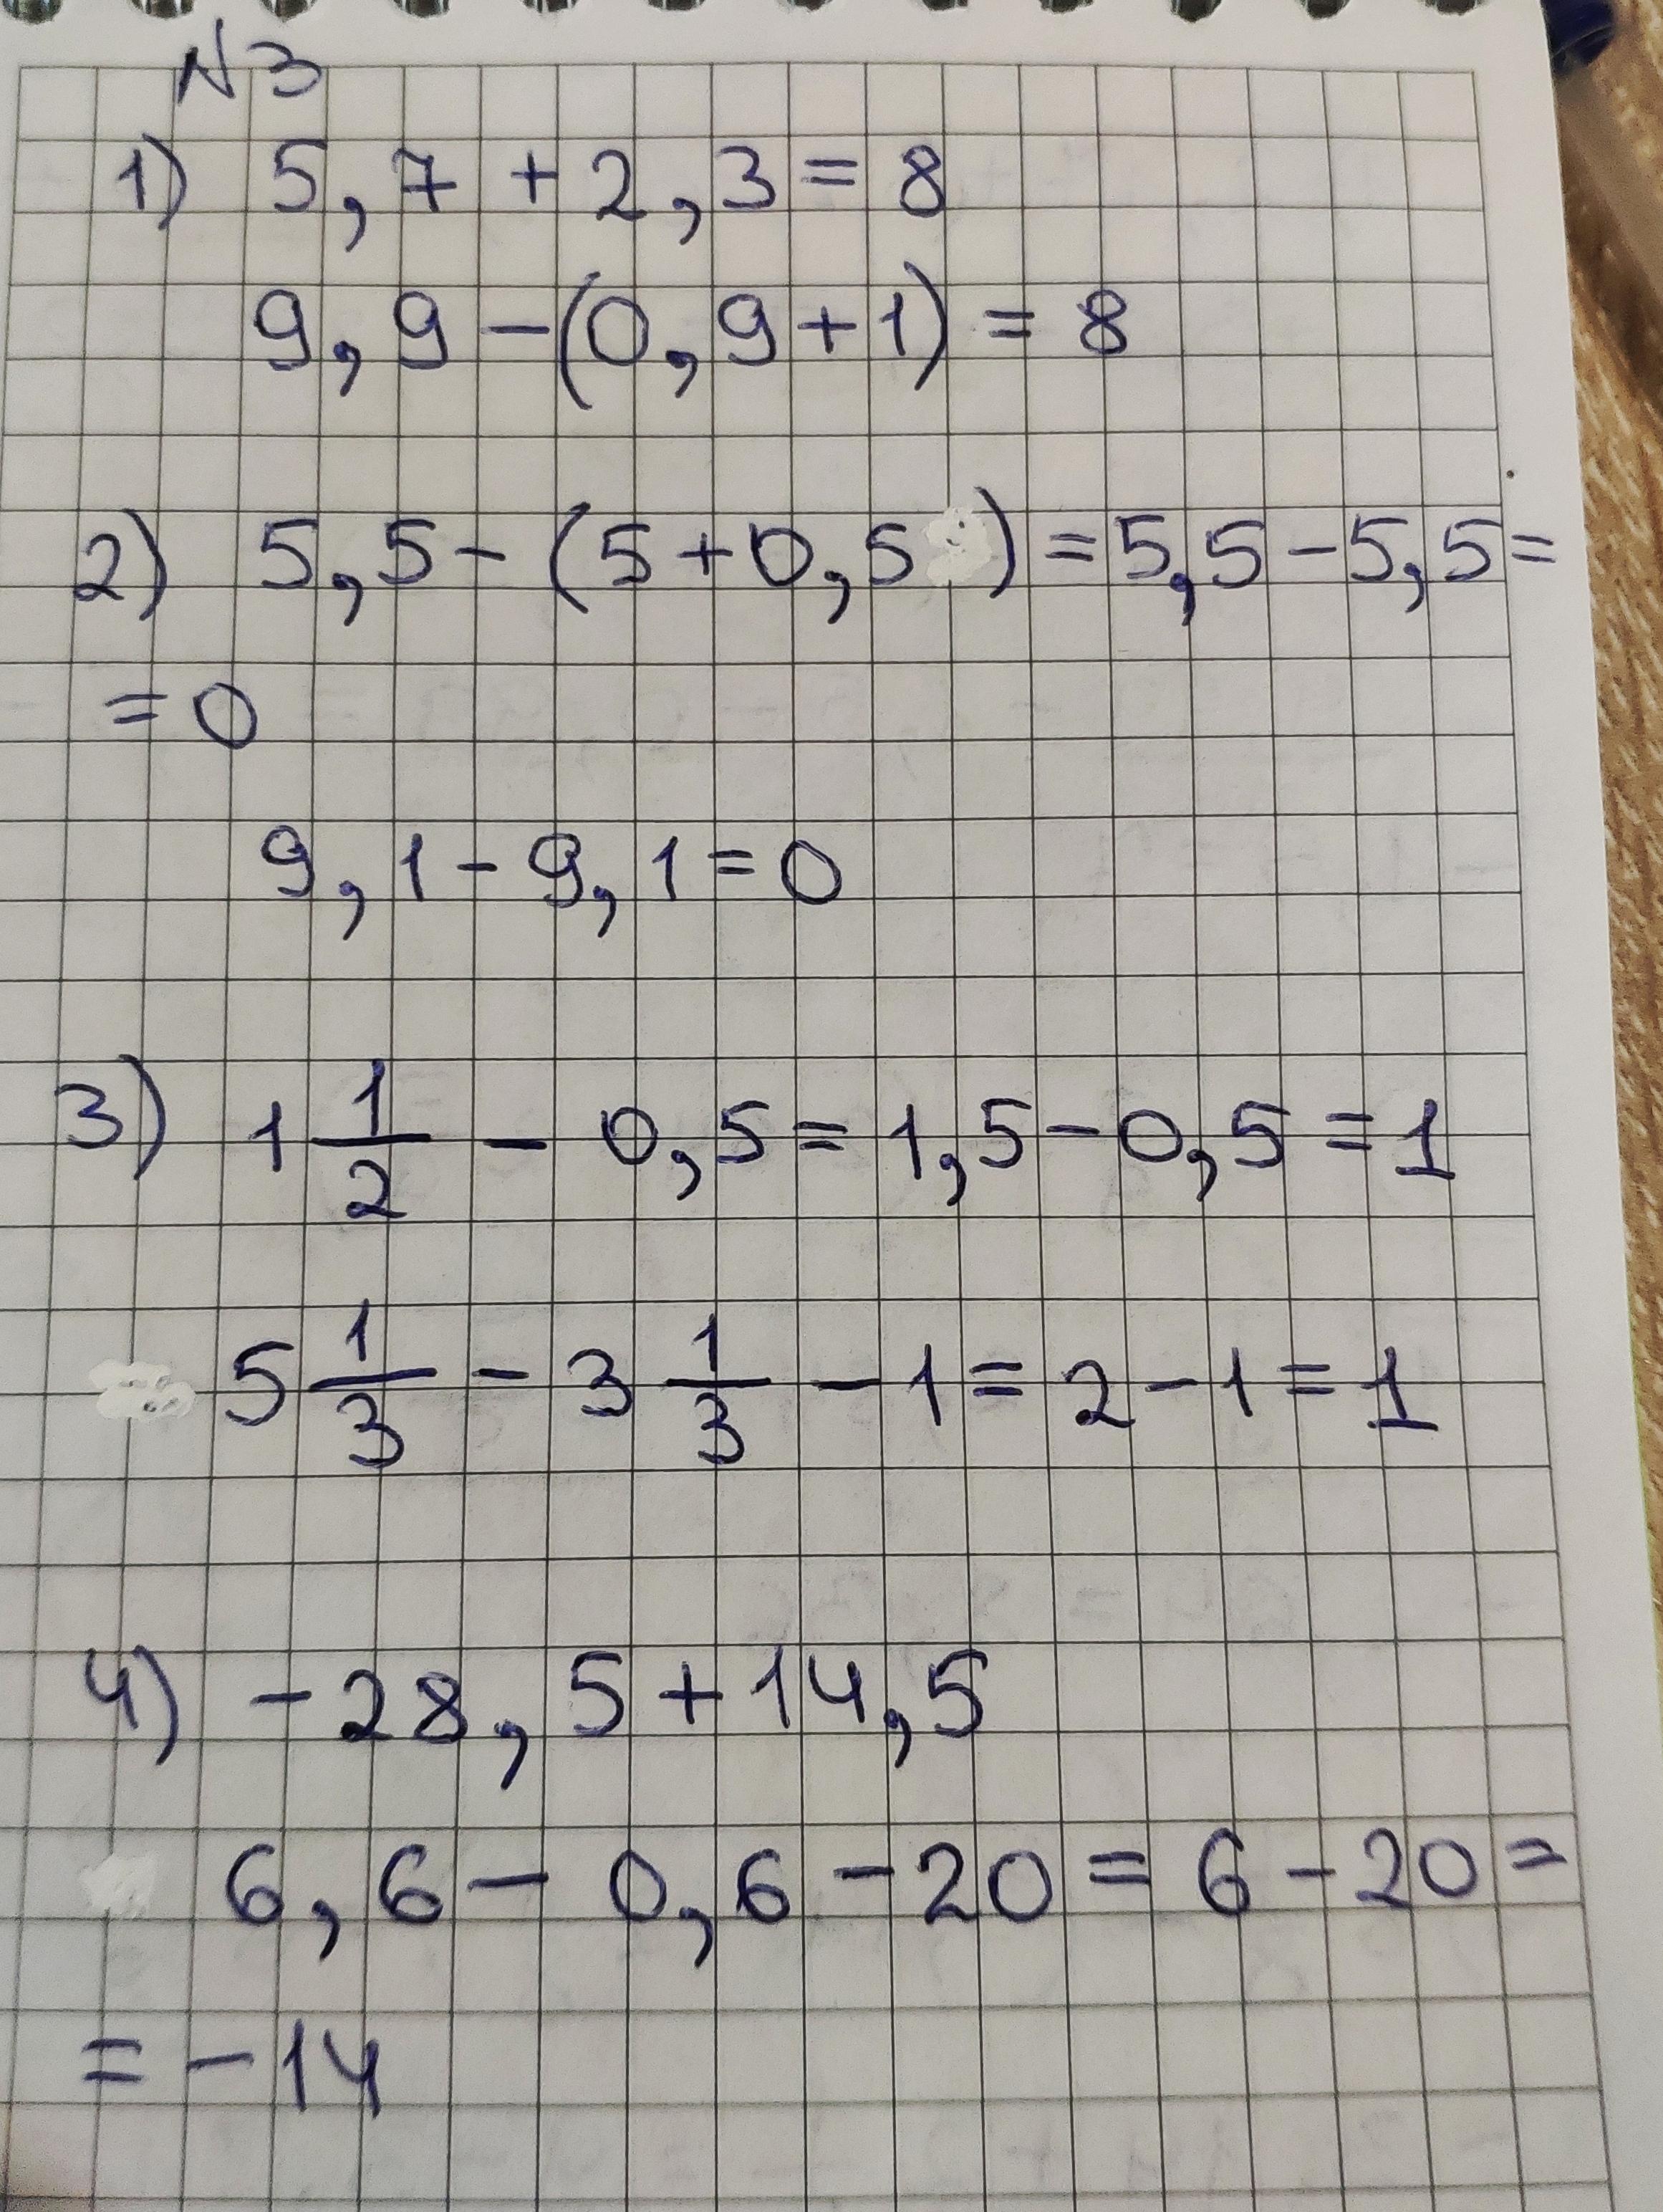 N3
1) 5,7 + 2,3 = 8
9,9 - (0,9 + 1) = 8
2) 5,5 - (5 + 0,5) = 5,5 - 5,5 =
= 0
9,1 - 9,1 = 0
3) 1 1/2 - 0,5 = 1,5 - 0,5 = 1
5 1/3 - 3 1/3 - 1 = 2 - 1 = 1
4) -28,5 + 14,5
6,6 - 0,6 - 20 = 6 - 20 =
= -14